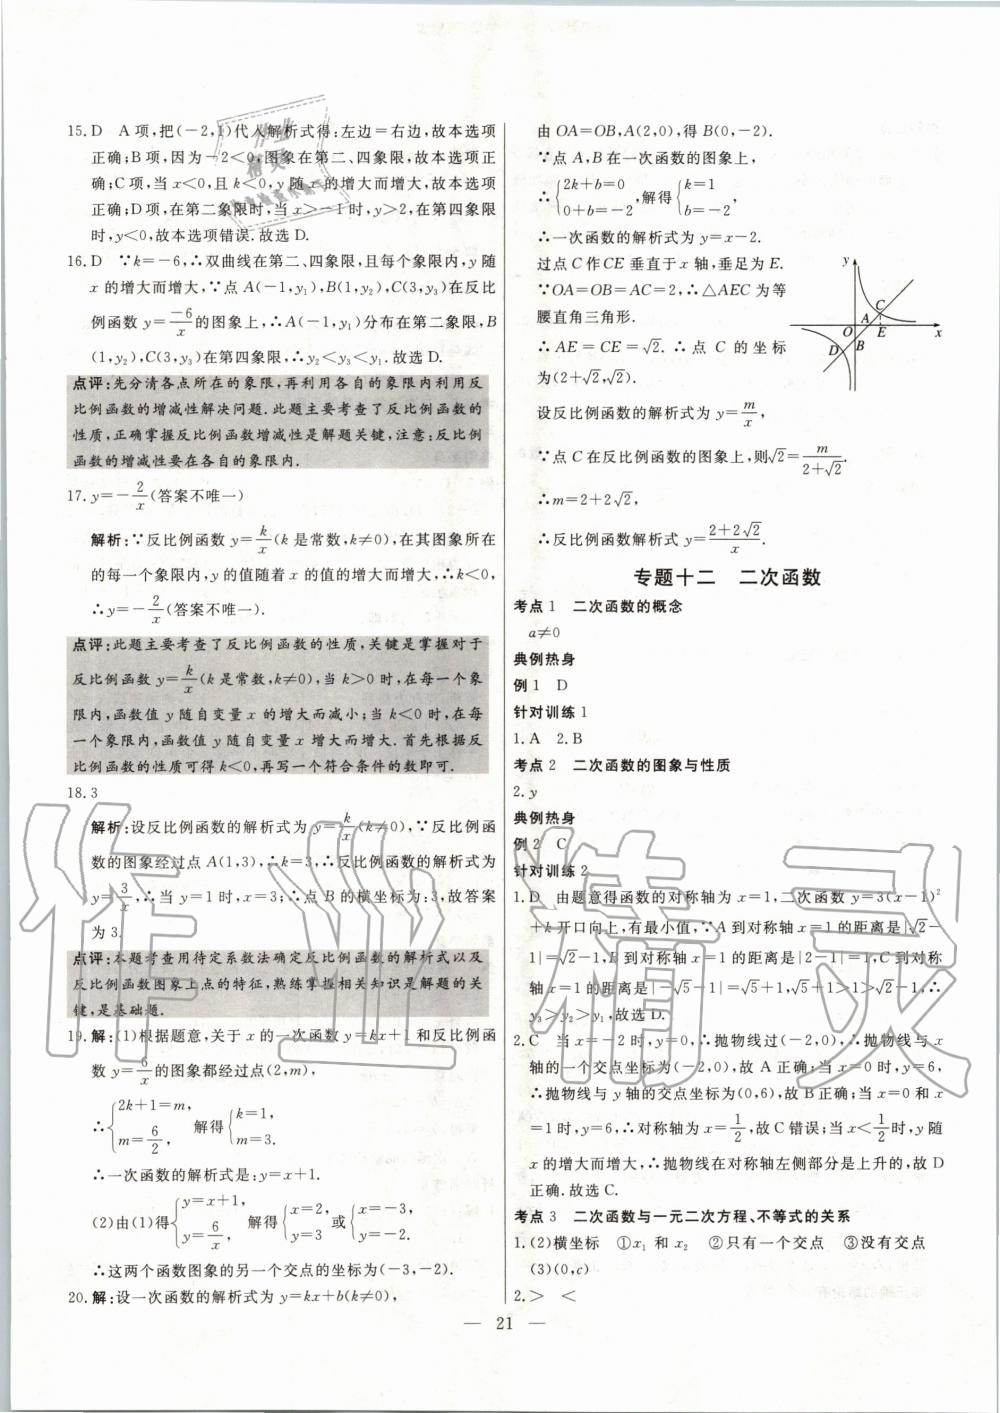 15. D A项,把(-2,1)代入解析式得:左边=右边,故本选项
正确;B项,因为-2<0,图象在第二、四象限,故本选项正
确;C项,当x<0,且k<0,y随x的增大而增大,故本选项
正确;D项,在第二象限时,当x>-1时,y>2,在第四象限
时,y<0,故本选项错误.故选D.
16. D ∵k=-6,∴双曲线在第二、四象限,且每个象限内,y随
x的增大而增大,∵点A(-1,y₁),B(1,y₂),C(3,y₃)在反比
例函数y=-6/x的图象上,∴A(-1,y₁)分布在第二象限,B
(1,y₂),C(3,y₃)在第四象限,∴y₂<y₃<y₁.故选D.
点评:先分清各点所在的象限,再利用各自的象限内利用反
比例函数的增减性解决问题.此题主要考查了反比例函数的
性质,正确掌握反比例函数增减性是解题关键,注意:反比例
函数的增减性要在各自的象限内.
17. y=-2/x(答案不唯一)
解析:∵反比例函数y=k/x(k是常数,k≠0),在其图象所在
的每一个象限内,y的值随着x的值的增大而增大,∴k<0,
∴y=-2/x(答案不唯一).
点评:此题主要考查了反比例函数的性质,关键是掌握对于
反比例函数y=k/x(k是常数,k≠0),当k>0时,在每一个象
限内,函数值y随自变量x的增大而减小;当k<0时,在每
一个象限内,函数值y随自变量x增大而增大.首先根据反
比例函数的性质可得k<0,再写一个符合条件的数即可.
18. 3
解析:设反比例函数的解析式为y=k/x(k≠0),∵反比例函
数的图象经过点A(1,3),∴k=3,∴反比例函数的解析式为
y=3/x,∴当y=1时,x=3;∴点B的横坐标为:3,故答案
为3.
点评:本题考查用待定系数法确定反比例函数的解析式以及
反比例函数图象上点的特征,熟练掌握相关知识是解题的关
键,是基础题.
19. 解:(1)根据题意,关于x的一次函数y=kx+1和反比例函
数y=6/x的图象都经过点(2,m),
∴{2k+1=m, m=6/2, 解得{k=1, m=3.
∴一次函数的解析式是:y=x+1.
(2)由(1)得{y=x+1, y=6/x, 解得{x=2, y=3 或{x=-3, y=-2.
∴这两个函数图象的另一个交点的坐标为(-3,-2).
20. 解:设一次函数的解析式为y=kx+b(k≠0),
由OA=OB,A(2,0),得B(0,-2).
∵点A,B在一次函数的图象上,
∴{2k+b=0 0+b=-2,解得{k=1 b=-2,
∴一次函数的解析式为y=x-2.
过点C作CE垂直于x轴,垂足为E.
∵OA=OB=AC=2,∴△AEC为等
腰直角三角形.
∴AE=CE=√2.∴点C的坐标
为(2+√2,√2).
y C A O E x B D
设反比例函数的解析式为y=m/x,
∵点C在反比例函数的图象上,则√2=m/(2+√2).
∴m=2+2√2,
∴反比例函数解析式y=(2+2√2)/x.
专题十二 二次函数
考点1 二次函数的概念
a≠0
典例热身
例1 D
针对训练1
1. A 2. B
考点2 二次函数的图象与性质
2. y
典例热身
例2 C
针对训练2
1. D 由题意得函数的对称轴为x=1,二次函数y=3(x-1)²
+k开口向上,有最小值,∵A到对称轴x=1的距离是|√2-
1|=√2-1,B到对称轴x=1的距离是|2-1|=1,C到对称
轴x=1的距离是|-√5-1|=√5+1,√5+1>1>√2-1,∴
y₃>y₂>y₁,故选D.
2. C 当x=-2时,y=0,∴抛物线过(-2,0),∴抛物线与x
轴的一个交点坐标为(-2,0),故A正确;当x=0时,y=6,
∴抛物线与y轴的交点坐标为(0,6),故B正确;当x=0和x
=1时,y=6,∴对称轴为x=1/2,故C错误;当x<1/2时,y随
x的增大而增大,∴抛物线在对称轴左侧部分是上升的,故D
正确.故选C.
考点3 二次函数与一元二次方程、不等式的关系
1. (2)横坐标 ①x₁和x₂ ②只有一个交点 ③没有交点
(3)(0,c)
2. > <
— 21 —
作业精灵